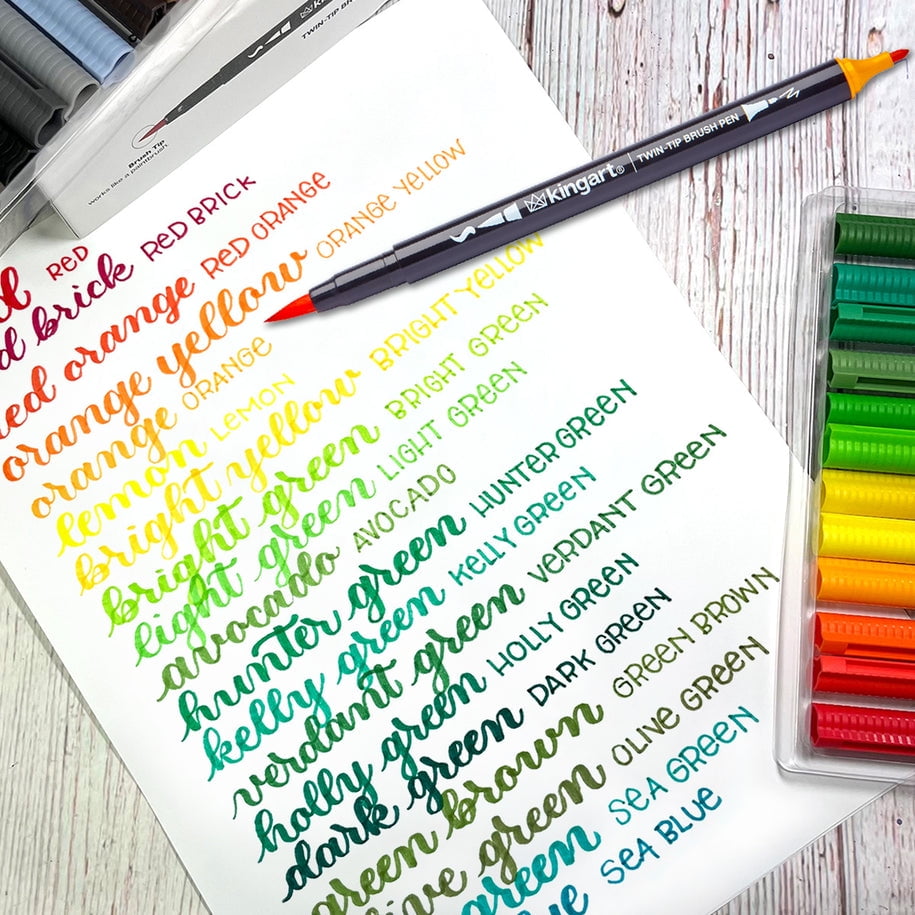 TWIN-TIP BR
kingart
Brush Tip
works like a paintbrush
kingart® TWIN-TIP BRUSH PEN
RED
d brick RED BRICK
red orange RED ORANGE
orange yellow ORANGE YELLOW
orange ORANGE
lemon LEMON
bright yellow BRIGHT YELLOW
bright green BRIGHT GREEN
light green LIGHT GREEN
avocado AVOCADO
hunter green HUNTER GREEN
kelly green KELLY GREEN
verdant green VERDANT GREEN
holly green HOLLY GREEN
dark green DARK GREEN
green brown GREEN BROWN
olive green OLIVE GREEN
green SEA GREEN
SEA BLUE